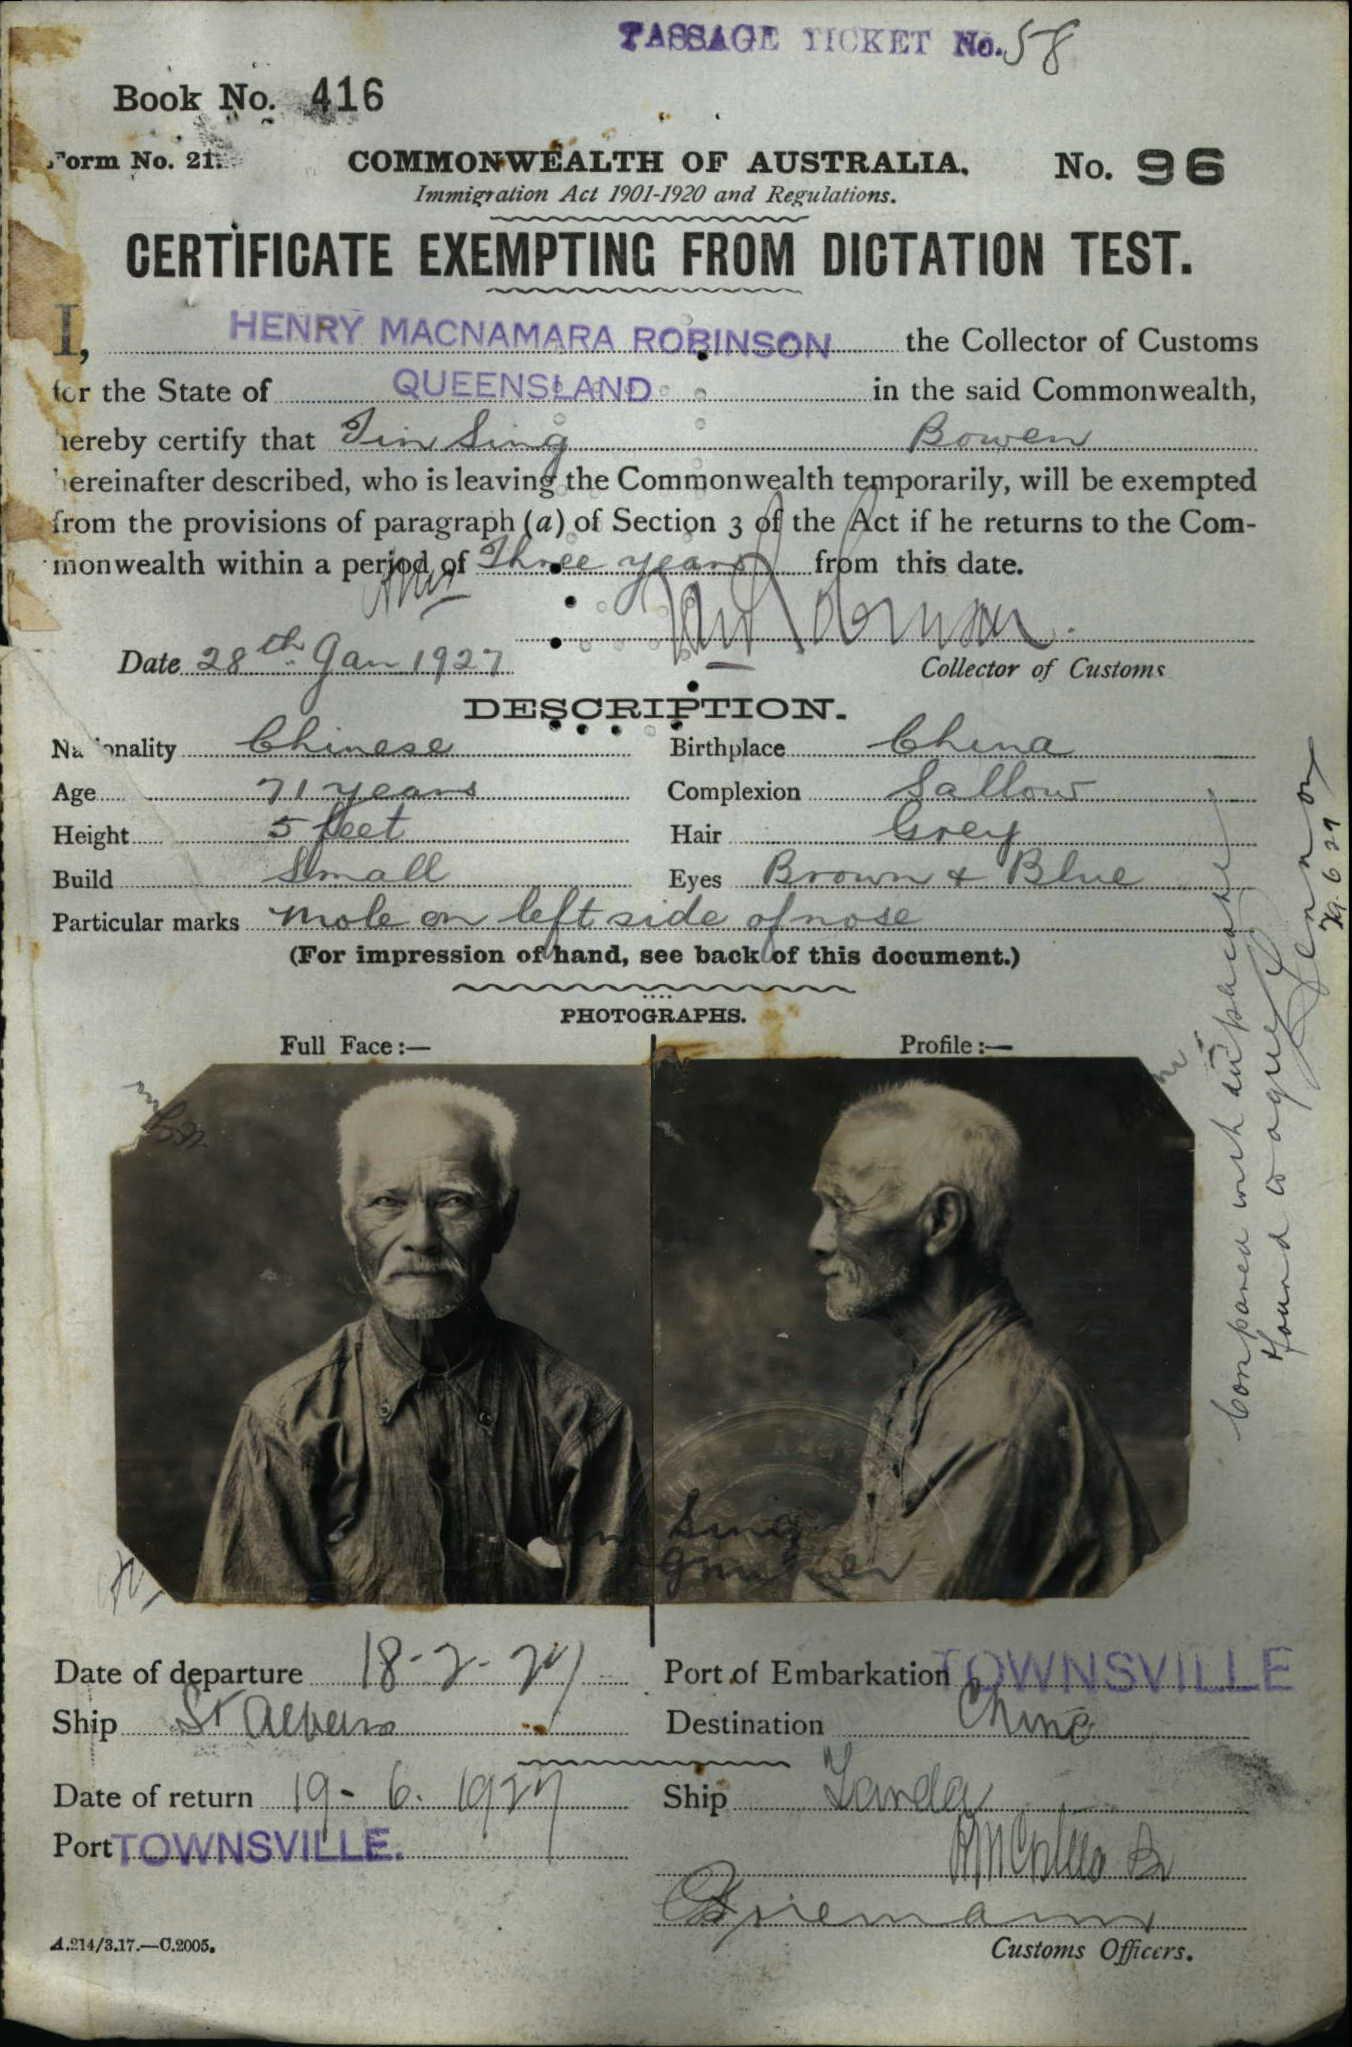 PASSAGE TICKET No. 58
Book No. 416
Form No. 21.
COMMONWEALTH OF AUSTRALIA.
No. 96
Immigration Act 1901-1920 and Regulations.
CERTIFICATE EXEMPTING FROM DICTATION TEST.
I, HENRY MACNAMARA ROBINSON the Collector of Customs
for the State of QUEENSLAND in the said Commonwealth,
hereby certify that Tim Sing Bowen
hereinafter described, who is leaving the Commonwealth temporarily, will be exempted
from the provisions of paragraph (a) of Section 3 of the Act if he returns to the Com-
monwealth within a period of Three years from this date.
Date 28th Jan 1927
Collector of Customs
DESCRIPTION.
Nationality Chinese
Birthplace China
Age 71 years
Complexion Sallow
Height 5 feet
Hair Grey
Build Small
Eyes Brown & Blue
Particular marks Mole on left side of nose
(For impression of hand, see back of this document.)
PHOTOGRAPHS.
Full Face:—
Profile:—
Compared with duplicate
& found to agree
Sing
Date of departure 18-2-27
Port of Embarkation TOWNSVILLE
Ship St Albans
Destination China
Date of return 19-6-1927
Ship Tanda
Port TOWNSVILLE.
Customs Officers.
A.214/3.17.—C.2005.